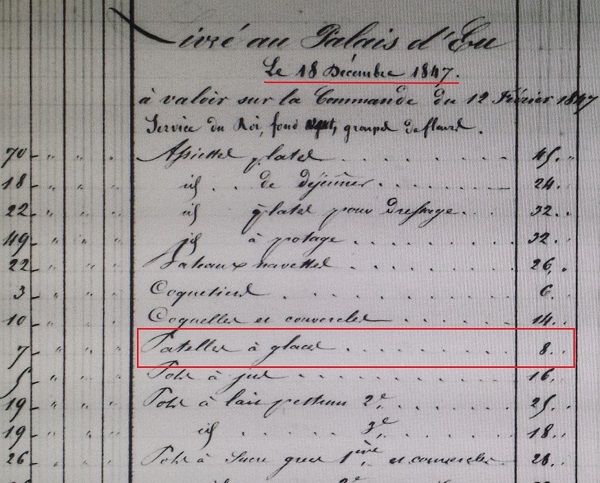 Livré au Palais d'Eu
Le 18 Décembre 1847.
à valoir sur la Commande du 12 Février 1847
Service du Roi, fond groupes de fleurs.
70 - " " " Assiettes plates . . . . . . . 45.
18 - " " " id . . de déjeuner . . . . . . 24.
22 - " " " id plates pour Dressage . . . 32. .
49 - " " " id à potage . . . . . . . 32. .
22 - " " " Bateaux navettes . . . . . . 26. .
3 - " " " Coquetiers . . . . . . . . 6. .
10 - " " " Coquelles et couvercles . . . . 14. .
7 - " " " Patelles à glaces . . . . . . . 8. .
5 - " " " Pots à jus . . . . . . . . 16. .
19 - " " " Pots à lait pestum 2e . . . . . 25. .
19 - " " " id . . . . . 3e . . . . . 18. .
26 - " " " Pots à Sucre grec 1ère et couvercles . . 28. .